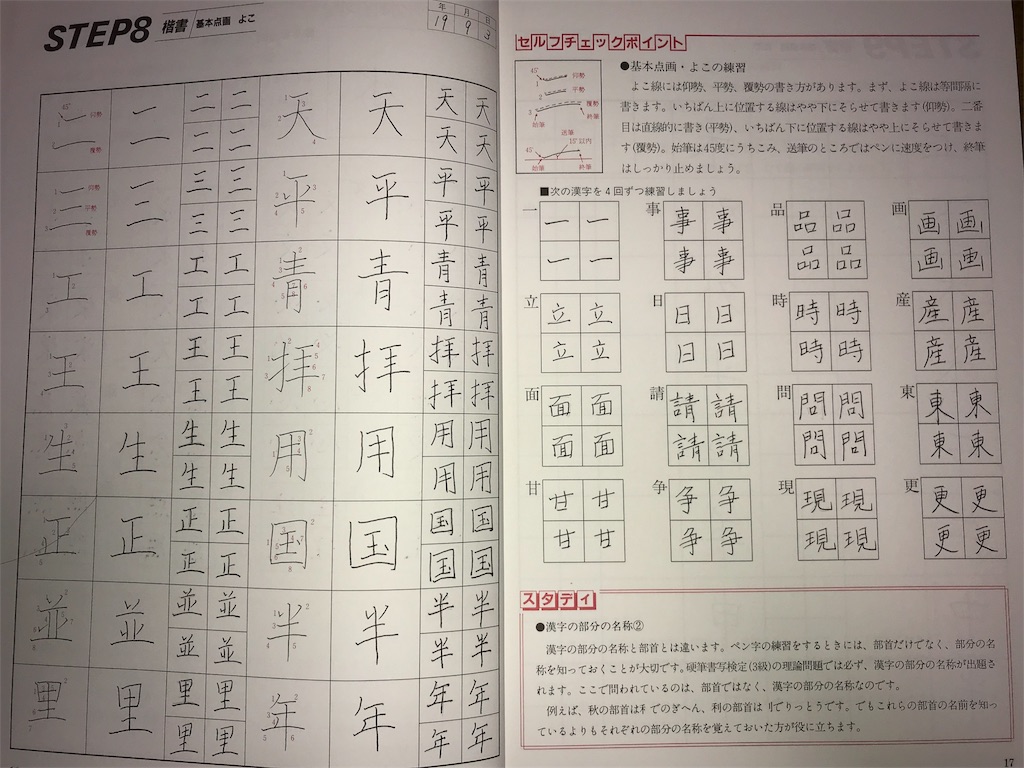 STEP8 楷書 基本点画 よこ
年 月 日
19 9 3
45° 仰勢 覆勢
二 二 二 二 二 二
天 天 天 天 天 天
仰勢 平勢 覆勢
三 三 三 三 三 三
平 平 平 平 平 平
工 工 工 工 工 工
青 青 青 青 青 青
王 王 王 王 王 王
拝 拝 拝 拝 拝 拝
生 生 生 生 生 生
用 用 用 用 用 用
正 正 正 正 正 正
国 国 国 国 国 国
並 並 並 並 並 並
半 半 半 半 半 半
里 里 里 里 里 里
年 年 年 年 年 年
セルフチェックポイント
45° 仰勢
1
2 平勢
3 覆勢
始筆 終筆
送筆
45° 15°以内
始筆 終筆
●基本点画・よこの練習
よこ線には仰勢、平勢、覆勢の書き方があります。まず、よこ線は等間隔に
書きます。いちばん上に位置する線はやや下にそらせて書きます(仰勢)。二番
目は直線的に書き(平勢)、いちばん下に位置する線はやや上にそらせて書きま
す(覆勢)。始筆は45度にうちこみ、送筆のところではペンに速度をつけ、終筆
はしっかり止めましょう。
■次の漢字を4回ずつ練習しましょう
一 一 一 事 事 事 品 品 品 画 画 画
一 一 事 事 品 品 画 画
立 立 立 日 日 日 時 時 時 産 産 産
立 立 日 日 時 時 産 産
面 面 面 請 請 請 問 問 問 東 東 東
面 面 請 請 問 問 東 東
甘 甘 甘 争 争 争 現 現 現 更 更 更
甘 甘 争 争 現 現 更 更
スタディ
●漢字の部分の名称②
漢字の部分の名称と部首とは違います。ペン字の練習をするときには、部首だけでなく、部分の名
称を知っておくことが大切です。硬筆書写検定(3級)の理論問題では必ず、漢字の部分の名称が出題さ
れます。ここで問われているのは、部首ではなく、漢字の部分の名称なのです。
例えば、秋の部首は禾でのぎへん、利の部首は刂でりっとうです。でもこれらの部首の名前を知っ
ているよりもそれぞれの部分の名称を覚えておいた方が役に立ちます。
17